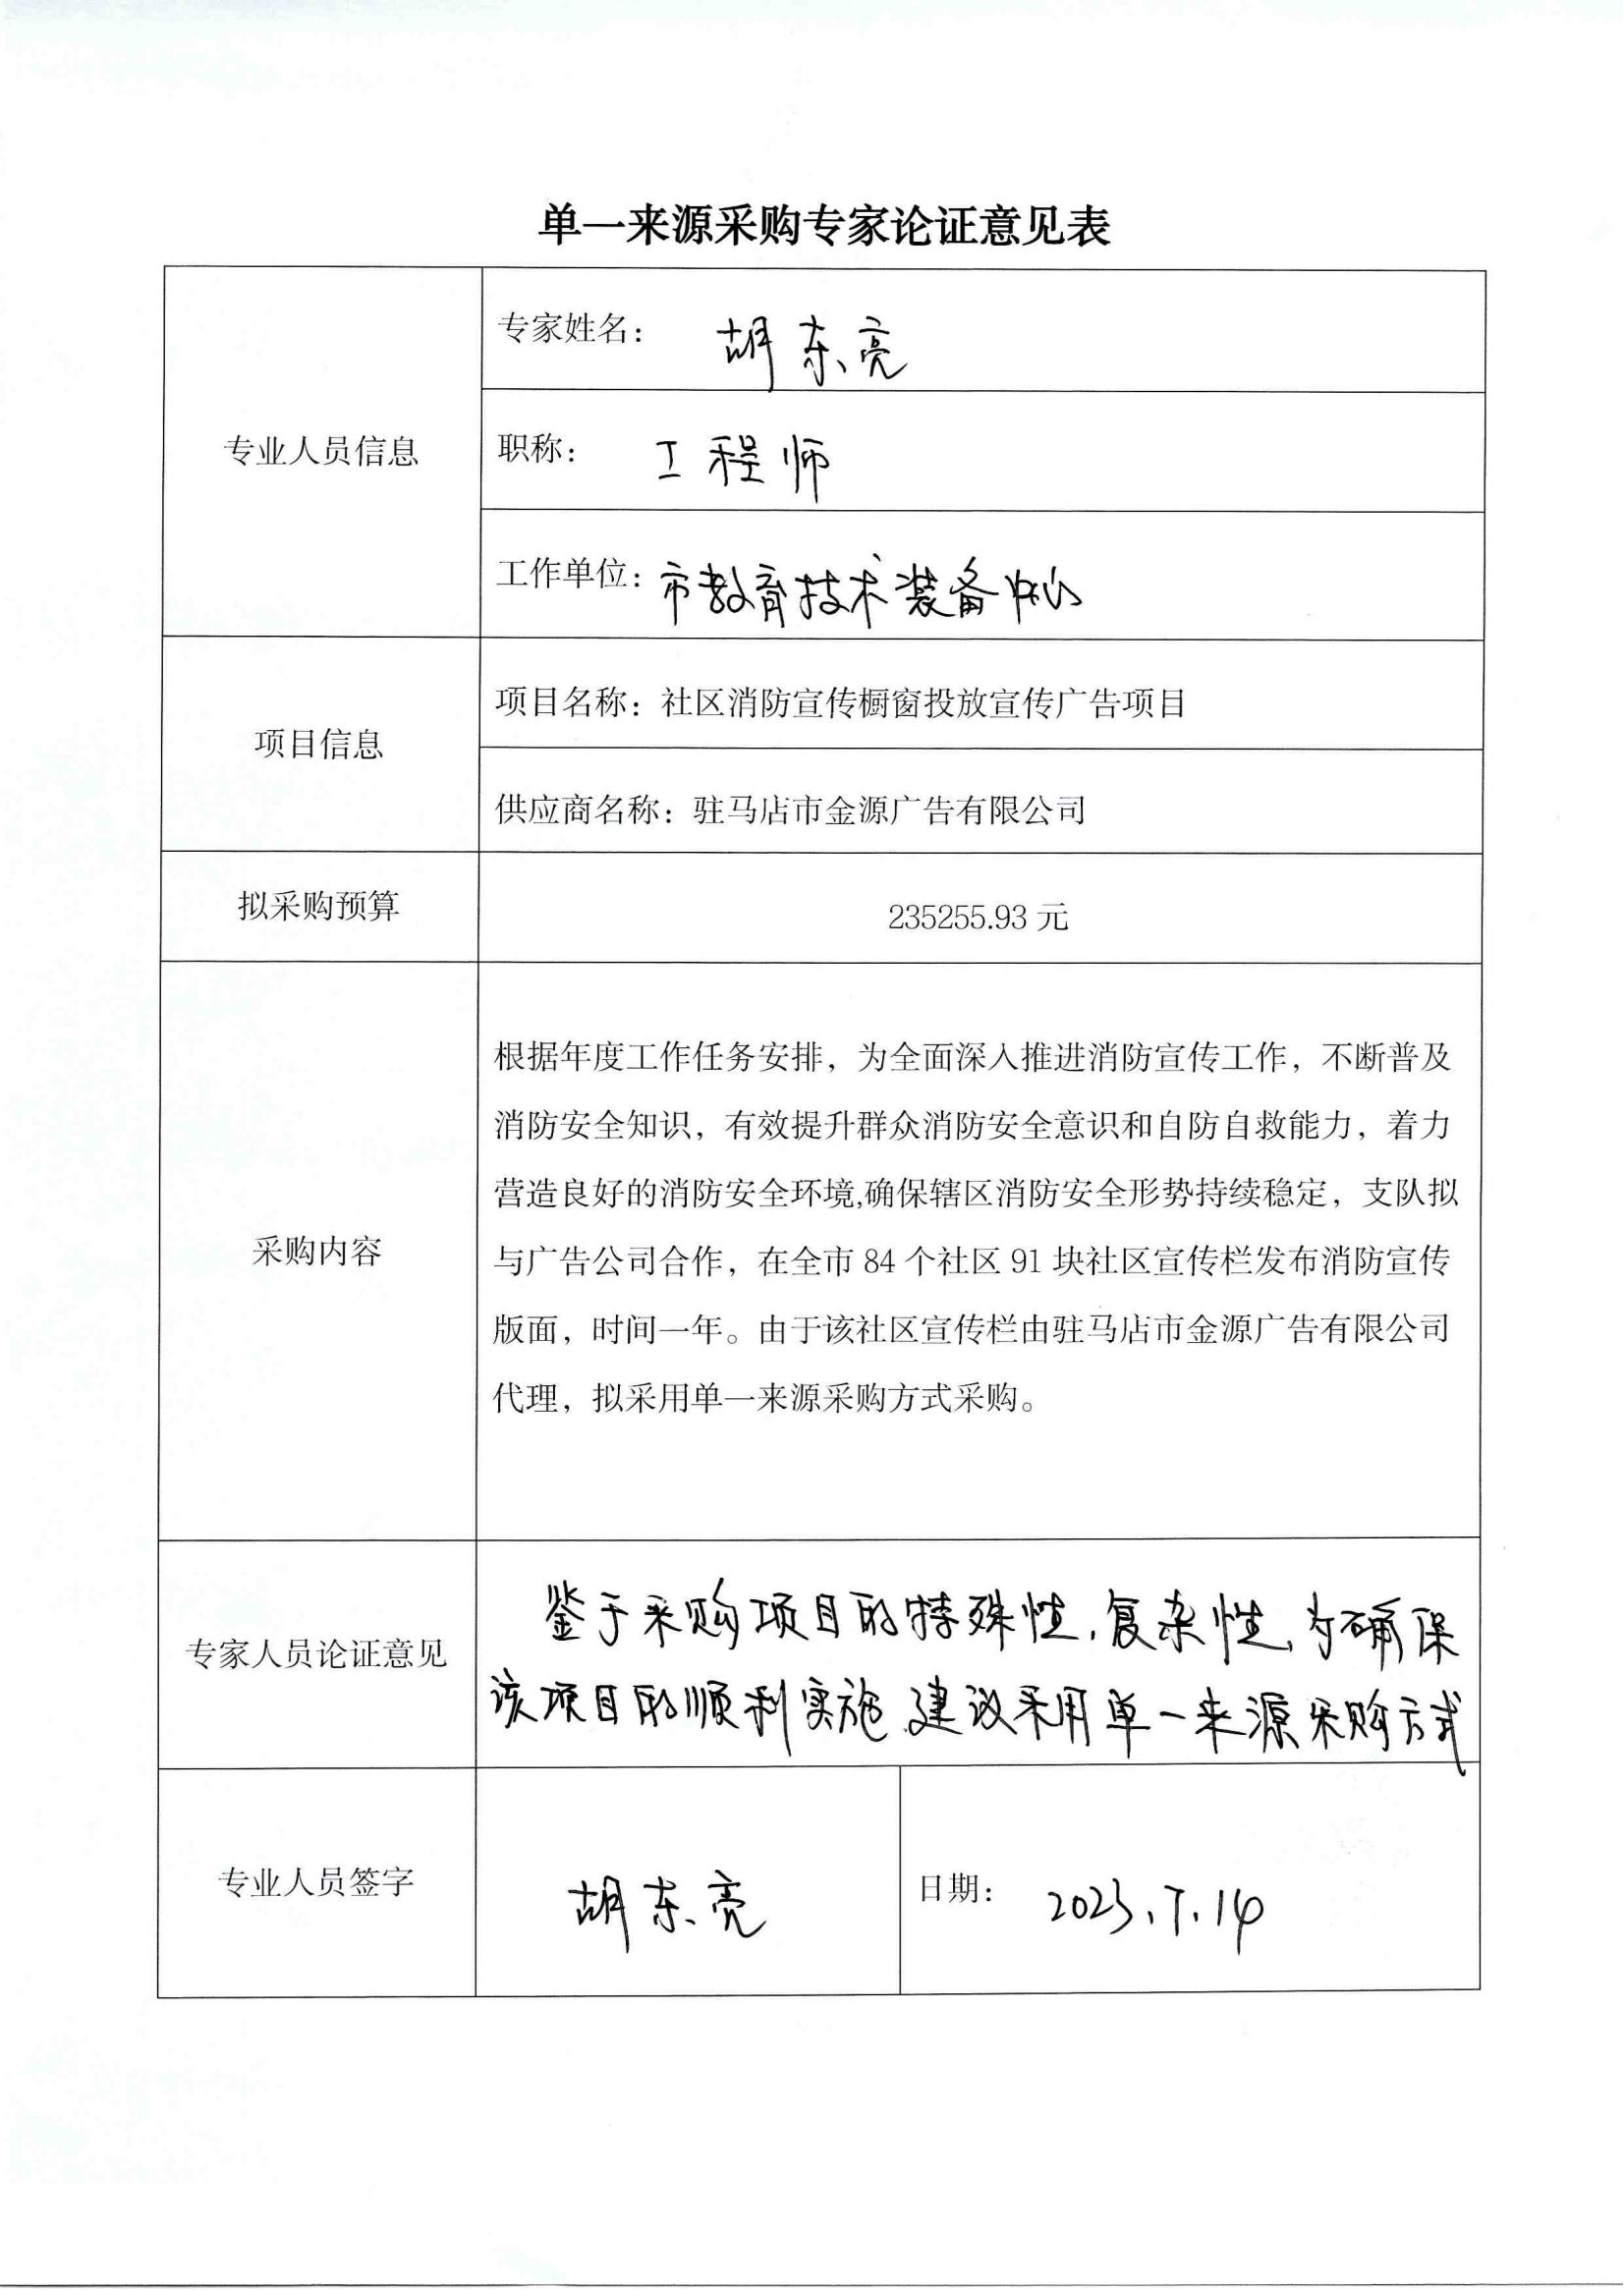 单一来源采购专家论证意见表
专业人员信息
专家姓名： 胡东亮
职称： 工程师
工作单位：市教育技术装备中心
项目信息
项目名称：社区消防宣传橱窗投放宣传广告项目
供应商名称：驻马店市金源广告有限公司
拟采购预算
235255.93 元
采购内容
根据年度工作任务安排，为全面深入推进消防宣传工作，不断普及
消防安全知识，有效提升群众消防安全意识和自防自救能力，着力
营造良好的消防安全环境,确保辖区消防安全形势持续稳定，支队拟
与广告公司合作，在全市 84 个社区 91 块社区宣传栏发布消防宣传
版面，时间一年。由于该社区宣传栏由驻马店市金源广告有限公司
代理，拟采用单一来源采购方式采购。
专家人员论证意见
鉴于采购项目的特殊性、复杂性，为确保
该项目的顺利实施 建议采用单一来源采购方式
专业人员签字
胡东亮
日期： 2023.7.14